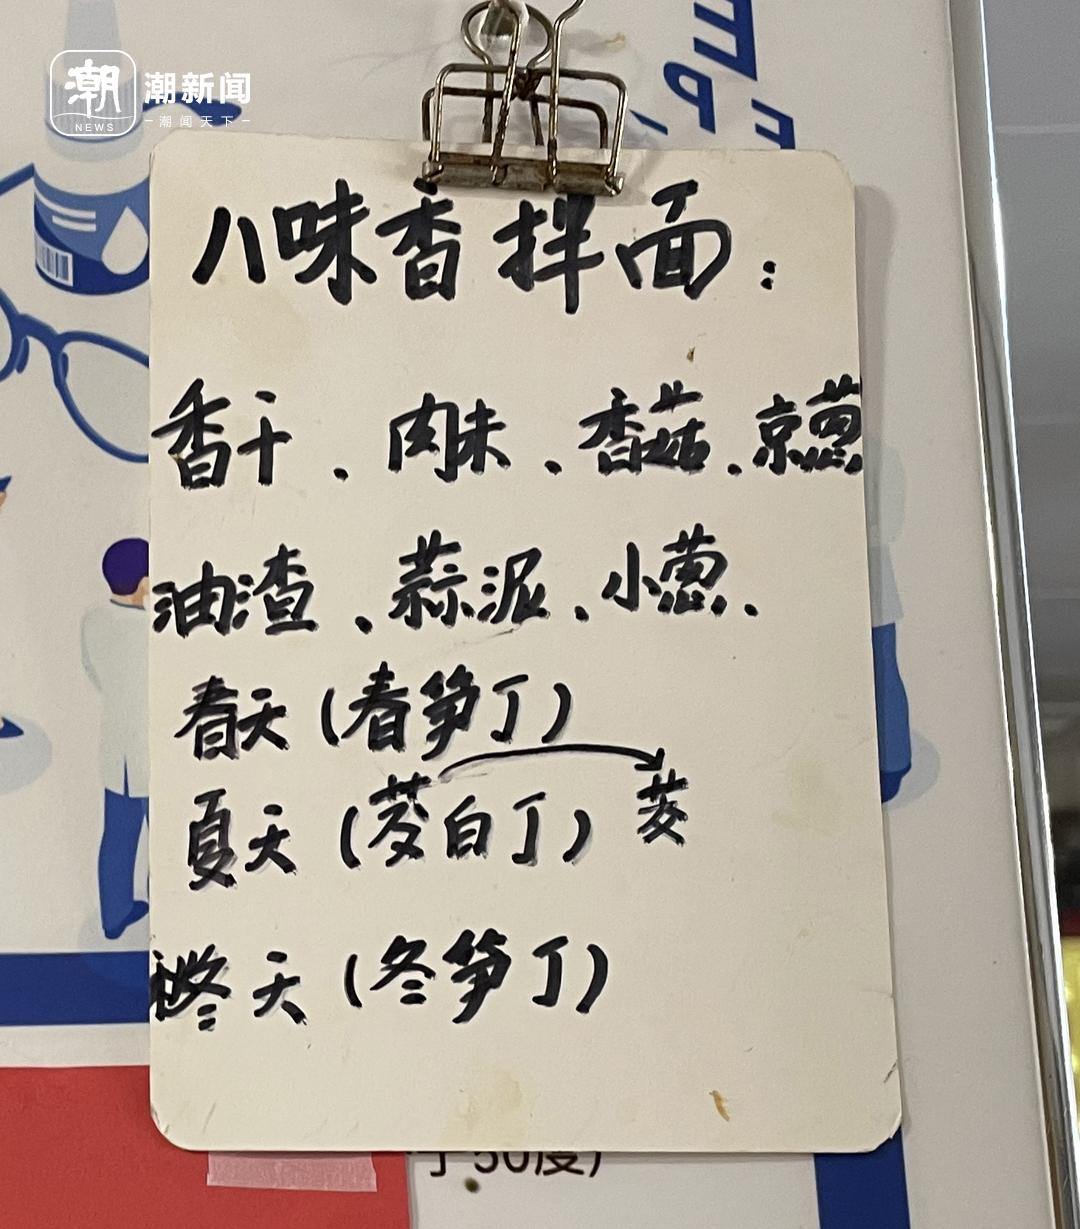 潮 潮新闻
NEWS
潮闻天下
八味香拌面：
香干、肉末、香菇、京葱
油渣、蒜泥、小葱、
春天（春笋丁）
夏天（茭白丁）茭
秋冬天（冬笋丁）
50度）